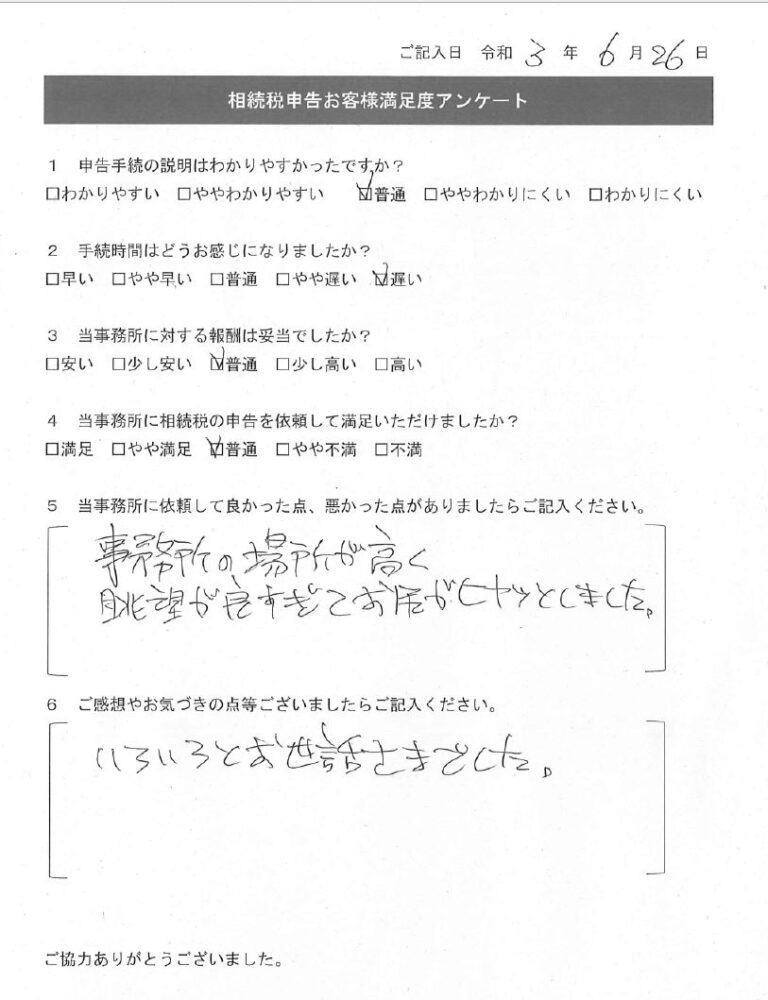 ご記入日 令和 3 年 6 月 26 日
相続税申告お客様満足度アンケート
1 申告手続の説明はわかりやすかったですか？
□わかりやすい □ややわかりやすい ☑普通 □ややわかりにくい □わかりにくい
2 手続時間はどうお感じになりましたか？
□早い □やや早い □普通 □やや遅い ☑遅い
3 当事務所に対する報酬は妥当でしたか？
□安い □少し安い ☑普通 □少し高い □高い
4 当事務所に相続税の申告を依頼して満足いただけましたか？
□満足 □やや満足 ☑普通 □やや不満 □不満
5 当事務所に依頼して良かった点、悪かった点がありましたらご記入ください。
事務所の場所が高く
眺望が良すぎてお尻がヒヤッとしました。
6 ご感想やお気づきの点等ございましたらご記入ください。
いろいろとお世話さまでした。
ご協力ありがとうございました。